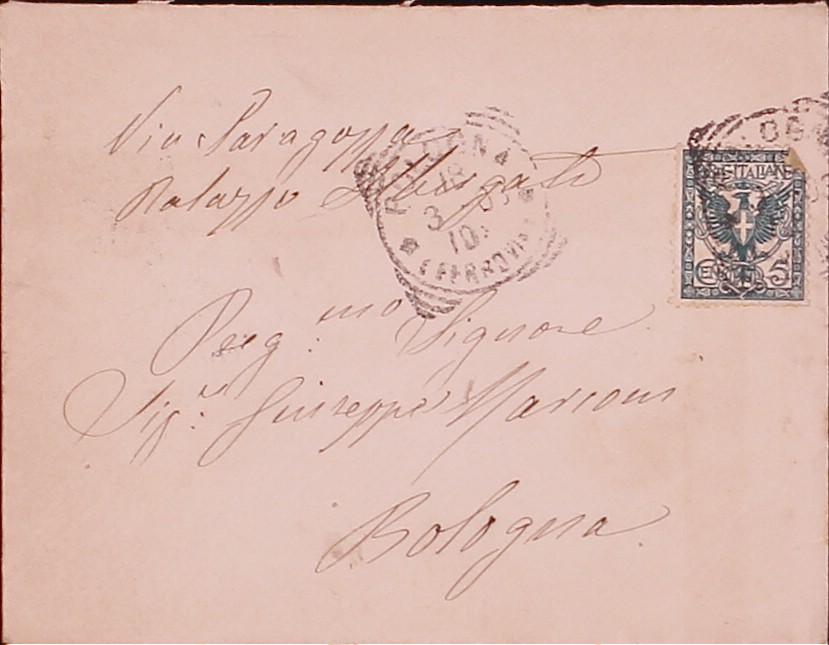 Via Saragozza
Palazzo Albergati
BOLOGNA
18
3 03
10
(FERROVIA)
POSTE ITALIANE
CENTES. 5
Preg.mo Signore
Sig.r Giuseppe Marconi
Bologna